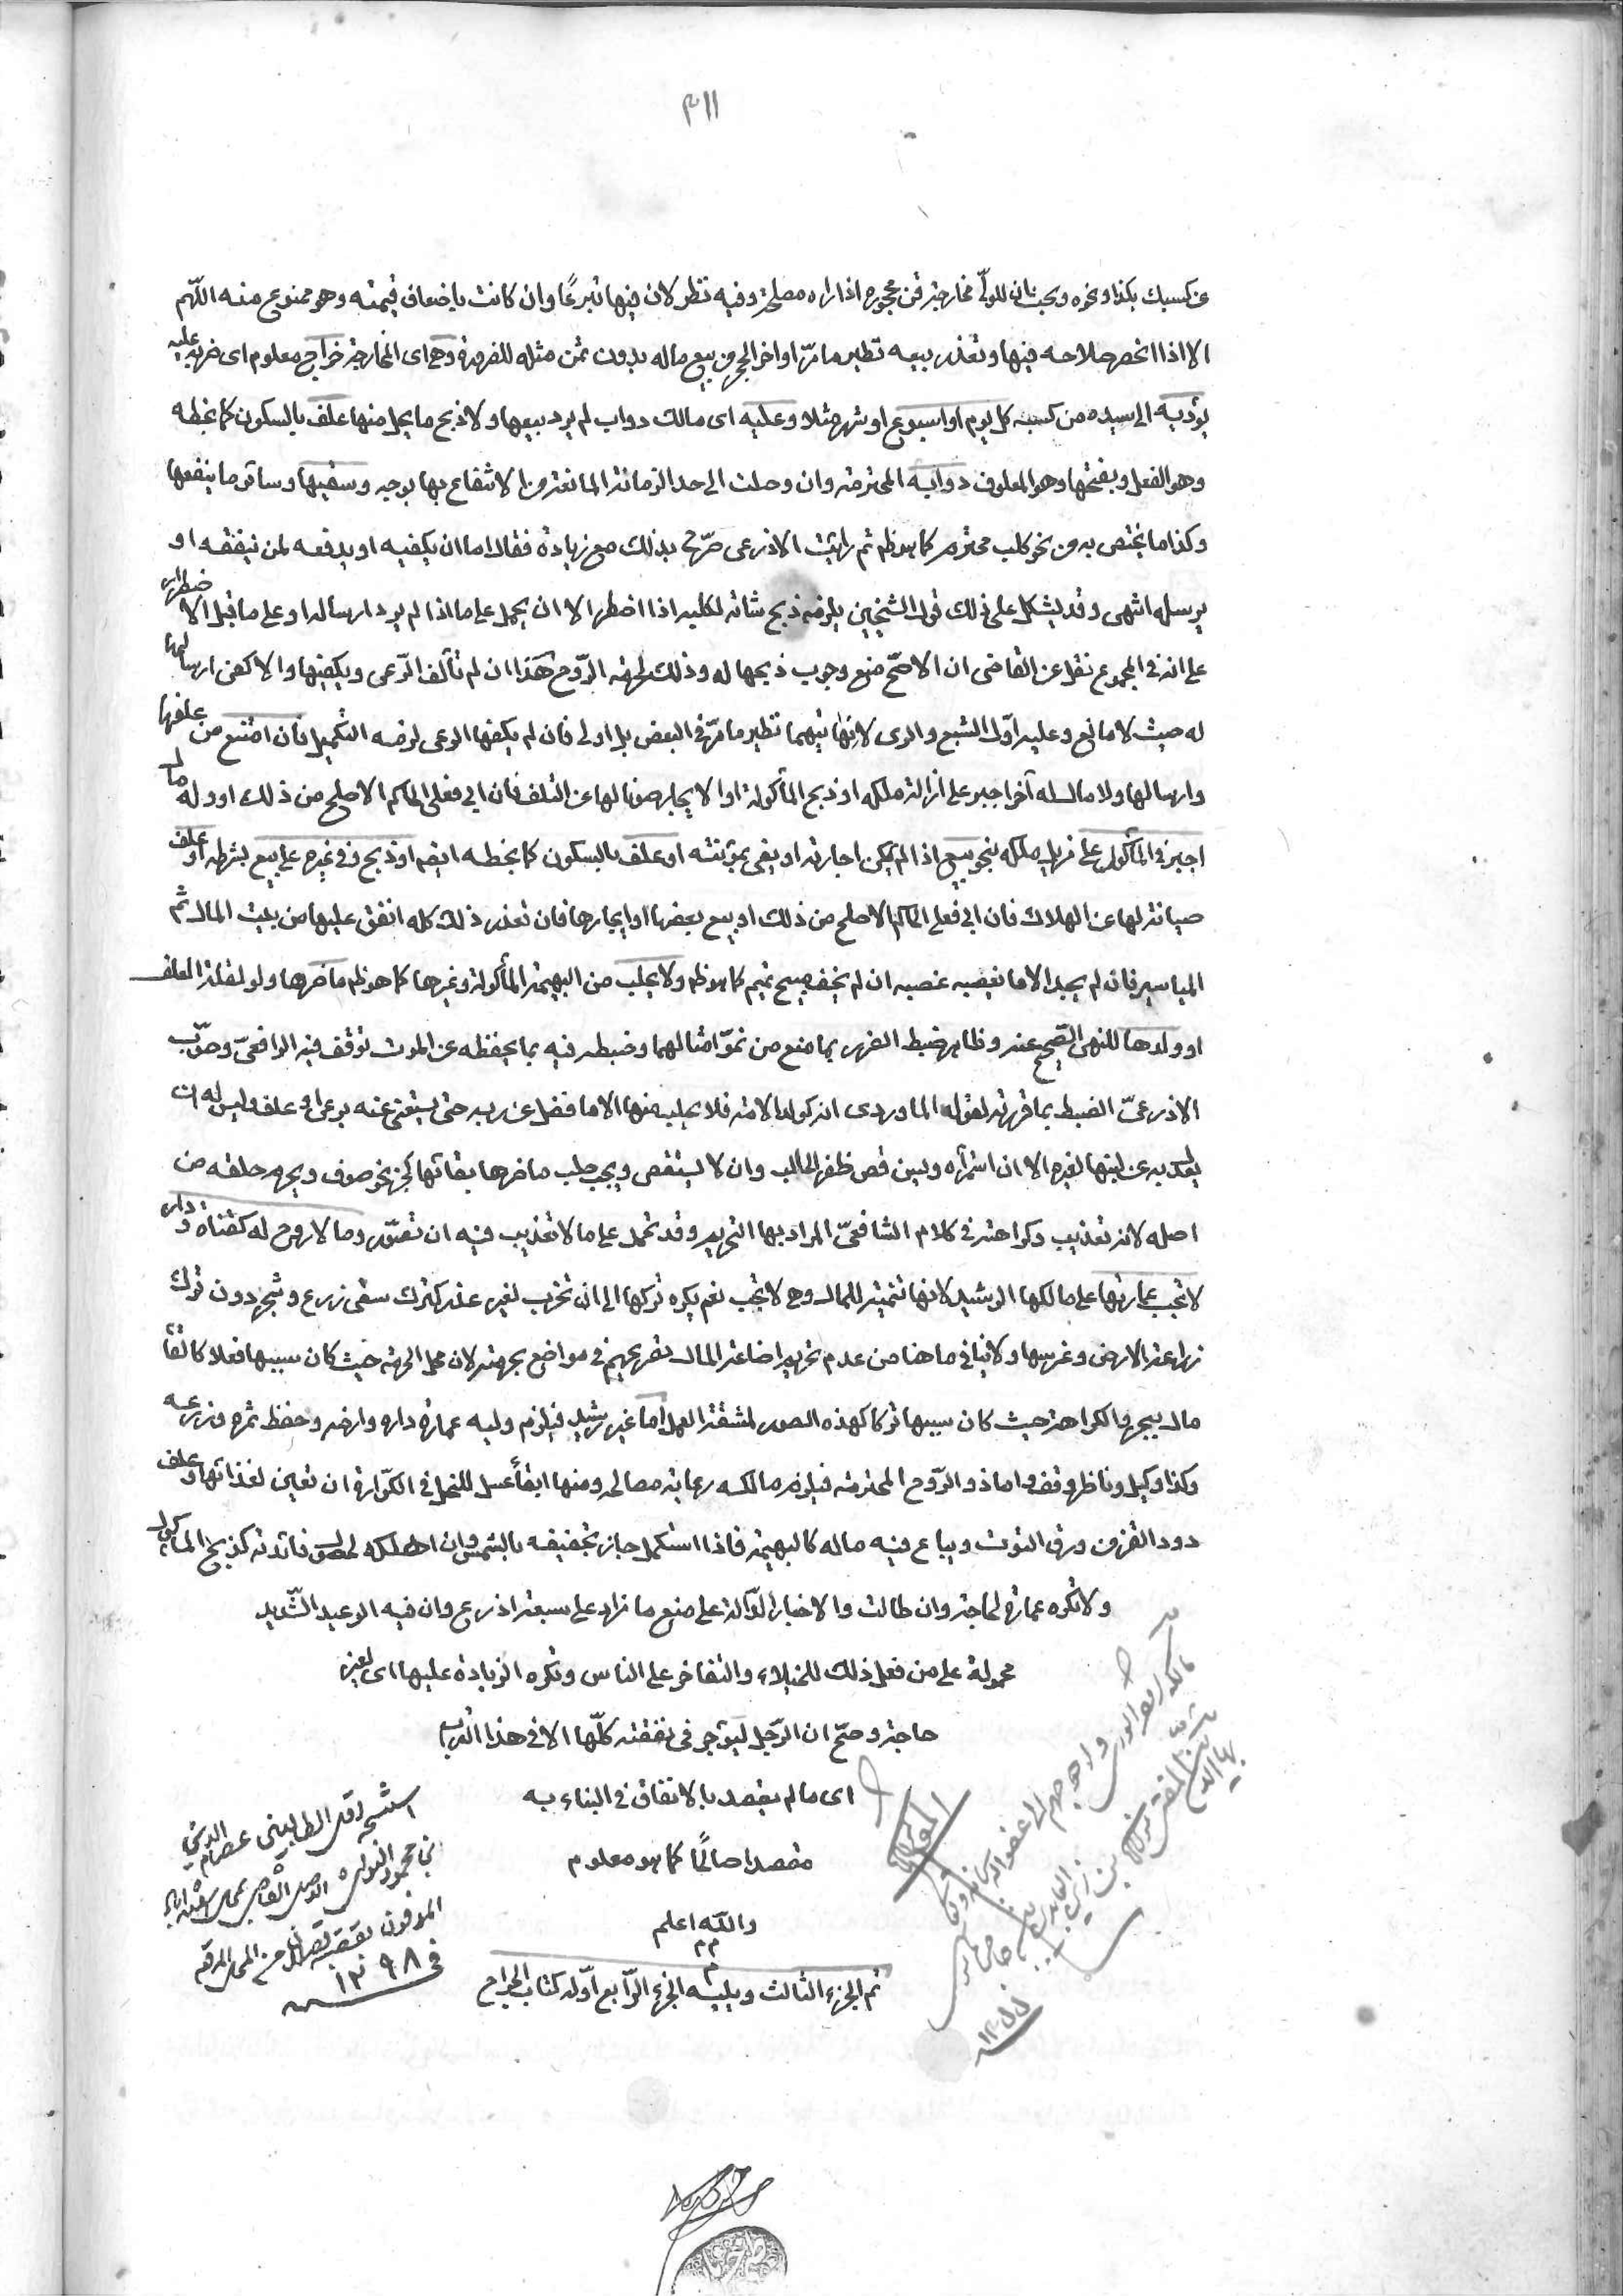 ٣١١
عن كسبك بكذا ونحوه وبحث ان للولي مخارجة قن محجوره اذا راه مصلحة وفيه نظر لان فيها تبرعًا وان كانت باضعاف قيمته وهو ممنوع منه اللّهم
الا اذا انحصر صلاحه فيها وتعذر بيعه نظير ما مرّ اواخر الحجر في بيع ماله بدون ثمن مثله للضرورة وهي اى المخارجة خراج معلوم اى ضربه عليه
يؤديه الى سيده من كسبه كل يوم او اسبوع او شهر مثلا وعليه اى مالك دواب لم يرد بيعها ولا ذبح ما يحل منها علف بالسكون كما بخطه
وهو الفعل وبفتحها وهو المعلوف دوابه المحترمة وان وصلت الى حد الزمانة المانعة من الانتفاع بها بوجه وسقيها وسائر ما ينفعها
وكذا ما يختص به من نحو كلب محترم كما هو ظ ثم رايت الاذرعى صرّح بذلك مع زيادة فقال اما ان يكفيه او يدفعه لمن ينفقه او
يرسله انتهى وقد يشكل على ذلك قول الشيخين يلزمه ذبح شاته لكلبه اذا اضطر الا ان يحمل على ما اذا لم يرد ارساله او على ما قبل الاضطرار
على انه فى المجموع نقل عن القاضى ان الاصحّ منع وجوب ذبحها له وذلك لحرمة الرّوح هذا ان لم تألف الرّعى ويكفيها والا كفى ارسالها
له حيث لا مانع وعليه اوّل الشبع والرى لانهايتهما نظير ما مرّ فى البعض بل اولى فان لم يكفها الرعى لزمه التكميل فان امتنع من علفها
وارسالها ولا مال له آخر اجبر على ازالة ملكه او ذبح المأكولة او الايجار صونا لها عن التلف فان ابى فعل الحاكم الاصلح من ذلك او وله مال
اجبر فى المأكول على مزيل ملكه بنحو بيع اذا لم يمكن اجارته او يفى بمؤنته او علف بالسكون كما بخطه ايضم او ذبح وفى غيره على بيع بشرطه او علف
صيانة لها عن الهلاك فان ابى فعل الحاكم الاصلح من ذلك او بيع بعضها او ايجارها فان تعذر ذلك كله انفق عليها من بيت المال ثم
المياسير فان لم يجد الا ما يغصبه غصبه ان لم يخف مبيح تيمم كما هو ظ ولا يحلب من البهيمة المأكولة وغيرها كما هو ظ ما ضرها ولو لقلة العلف
او ولدها للنهى الصّحيح عنه وظاهر ضبط الضرر بما منع من نموّ امثالهما وضبطه فيه بما يحفظه عن الموت توقف فيه الرافعىّ وصوّب
الاذرعىّ الضبط بما قررته لقول الماوردى انه كولد الامة فلا يحلب منها الا ما فضل عن ريه حتى يستغنى عنه برعى او علف وليس له ان
يعدل به عن لبنها لغيره الا ان استمرأه ويسن قص ظفر الحالب وان لا يستقصى ويجب حلب ما ضرها بقائها كجز نحو صوف ويحرم حلقه من
اصله لانه تعذيب وكراهته فى كلام الشافعىّ المراد بها التحريم وقد تحمل على ما لا تعذيب فيه ان تصوّر وما لا روح له كقناة ودار
لا تجب عمارتها على مالكها الرشيد لانها تنمية للمال وهى لا تجب نعم يكره تركها الى ان تخرب لغير عذر كترك سقى زرع وشجر دون ترك
زراعة الارض وغرسها ولا ينافى ما هنا من عدم تحريم اضاعة المال تصريحهم فى مواضع بحرمته لان محل الحرمة حيث كان سببها فعلا كالقاء
مال ببحر والكراهة حيث كان سببها تركا كهذه الصور لمشقة العمل اما غير رشيد فيلزم وليه عمارة داره وارضه وحفظ ثمره وزرعه
وكذا وكيل وناظر وقف واما ذو الرّوح المحترمة فيلزم مالكه رعاية مصالحه ومنها ابقاء عسل للنحل فى الكوّارة ان تعين لغذائها وعلف
دود القز من ورق التوت ويباع فيه ماله كالبهيمة فاذا استكمل جاز تجفيفه بالشمس وان اهلكه لحصول فائدته كذبح المأكول
ولا تكره عمارة لحاجة وان طالت والاخبار الدّالة على منع ما زاد على سبعة اذرع وان فيه الوعيد الشّديد
محمولة على من فعل ذلك للخيلاء والتفاخر على الناس وتكره الزيادة عليها اى لغير
حاجة وصحّ ان الرّجل ليؤجر فى نفقته كلّها الا فى هذا التراب
اى ما لم يقصد بالانفاق فى البناء به
مقصدا صالحًا كما هو معلوم
والله اعلم
م م
م
تم الجزء الثالث ويليه الجزء الرّابع اوّله كتاب الجراح
استنسخه اقل الطالبين عصام الدين
بن محمود
فى ١٣٩٨